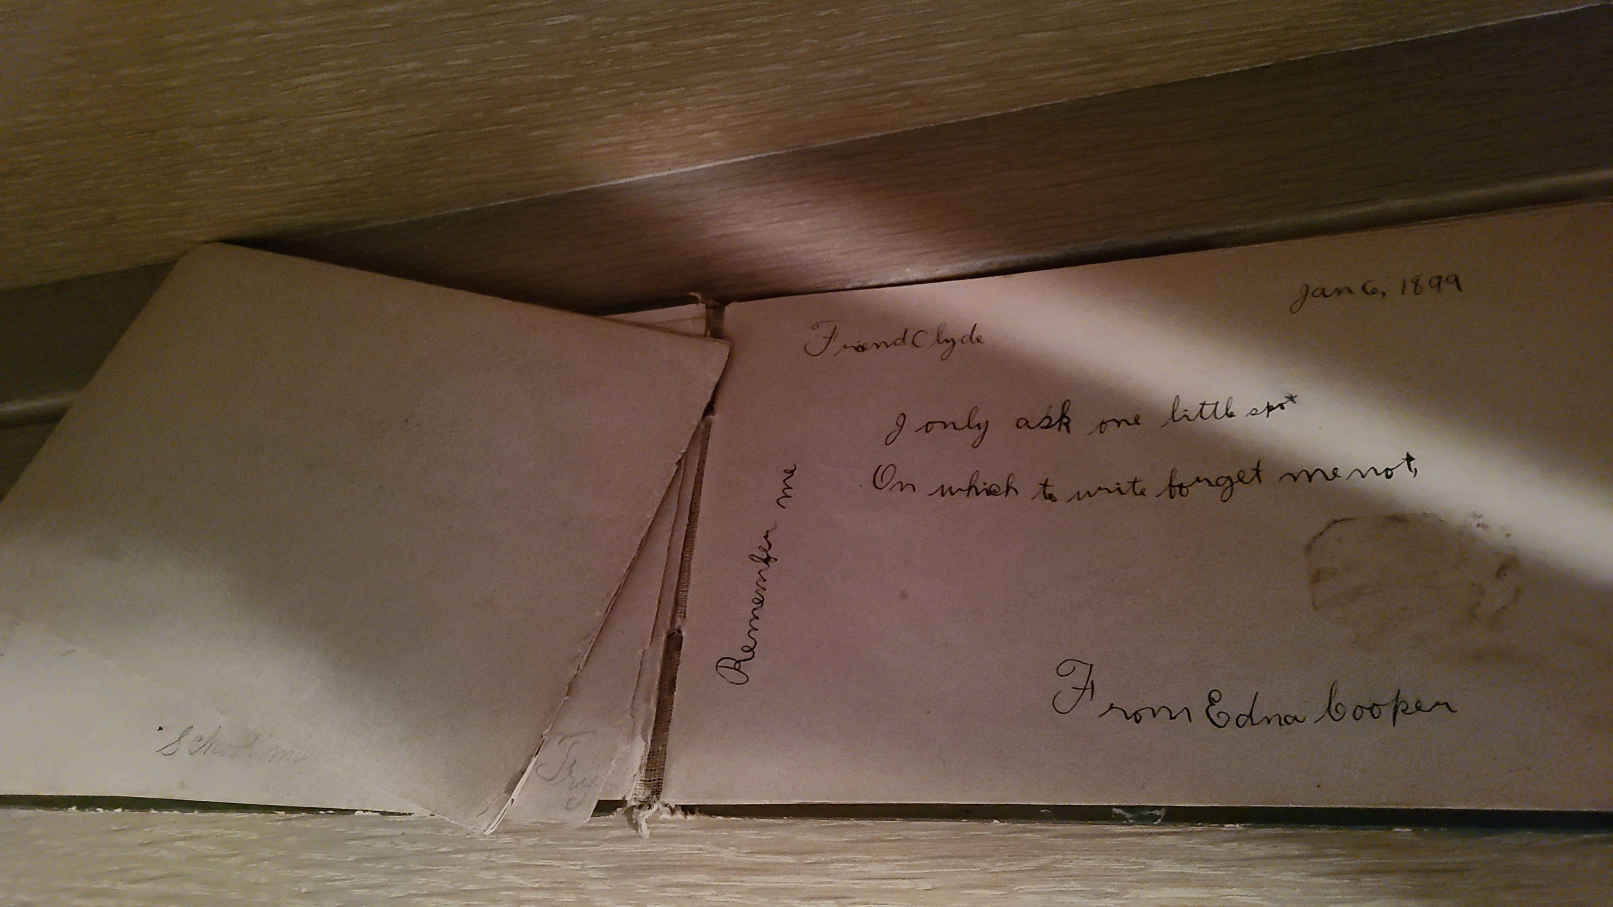 Jan 6, 1899
Friend Clyde
I only ask one little spot
On which to write forget me not,
Remember me
From Edna Cooper
Try